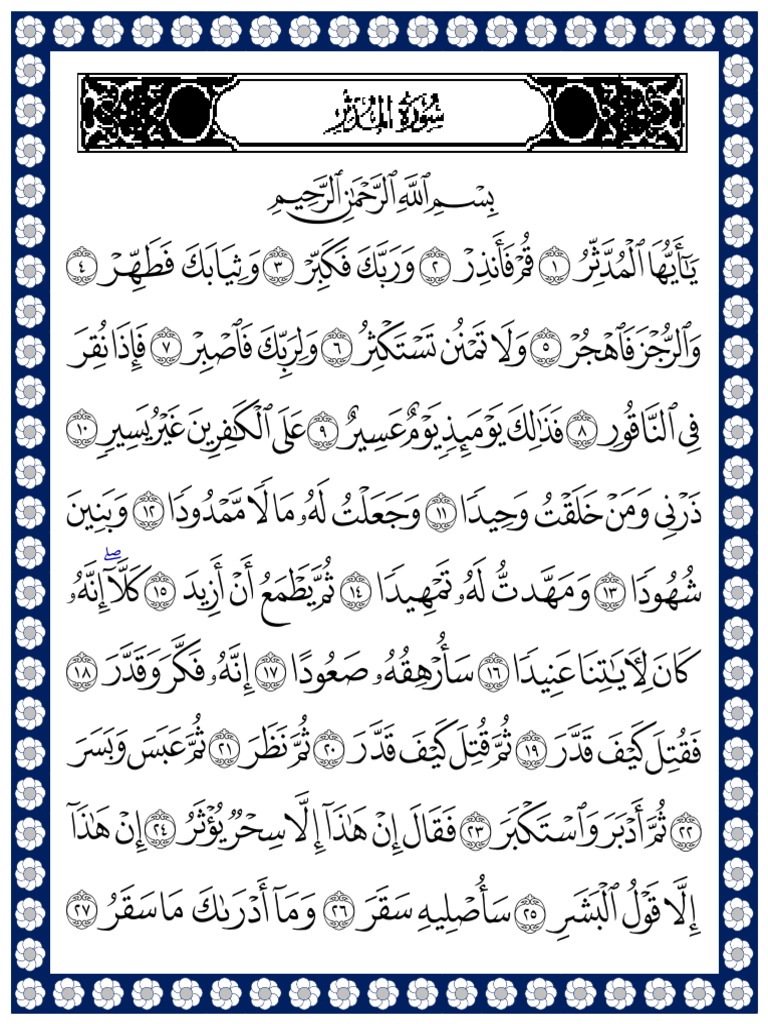 سُورَةُ المُدَّثِّر
بِسْمِ ٱللَّهِ ٱلرَّحْمَٰنِ ٱلرَّحِيمِ
يَٰٓأَيُّهَا ٱلْمُدَّثِّرُ ١ قُمْ فَأَنذِرْ ٢ وَرَبَّكَ فَكَبِّرْ ٣ وَثِيَابَكَ فَطَهِّرْ ٤
وَٱلرُّجْزَ فَٱهْجُرْ ٥ وَلَا تَمْنُن تَسْتَكْثِرُ ٦ وَلِرَبِّكَ فَٱصْبِرْ ٧ فَإِذَا نُقِرَ
فِى ٱلنَّاقُورِ ٨ فَذَٰلِكَ يَوْمَئِذٍ يَوْمٌ عَسِيرٌ ٩ عَلَى ٱلْكَٰفِرِينَ غَيْرُ يَسِيرٍ ١٠
ذَرْنِى وَمَنْ خَلَقْتُ وَحِيدًا ١١ وَجَعَلْتُ لَهُۥ مَالًا مَّمْدُودًا ١٢ وَبَنِينَ
شُهُودًا ١٣ وَمَهَّدتُّ لَهُۥ تَمْهِيدًا ١٤ ثُمَّ يَطْمَعُ أَنْ أَزِيدَ ١٥ كَلَّآ ۖ إِنَّهُۥ
كَانَ لِءَايَٰتِنَا عَنِيدًا ١٦ سَأُرْهِقُهُۥ صَعُودًا ١٧ إِنَّهُۥ فَكَّرَ وَقَدَّرَ ١٨
فَقُتِلَ كَيْفَ قَدَّرَ ١٩ ثُمَّ قُتِلَ كَيْفَ قَدَّرَ ٢٠ ثُمَّ نَظَرَ ٢١ ثُمَّ عَبَسَ وَبَسَرَ
٢٢ ثُمَّ أَدْبَرَ وَٱسْتَكْبَرَ ٢٣ فَقَالَ إِنْ هَٰذَآ إِلَّا سِحْرٌ يُؤْثَرُ ٢٤ إِنْ هَٰذَآ
إِلَّا قَوْلُ ٱلْبَشَرِ ٢٥ سَأُصْلِيهِ سَقَرَ ٢٦ وَمَآ أَدْرَىٰكَ مَا سَقَرُ ٢٧